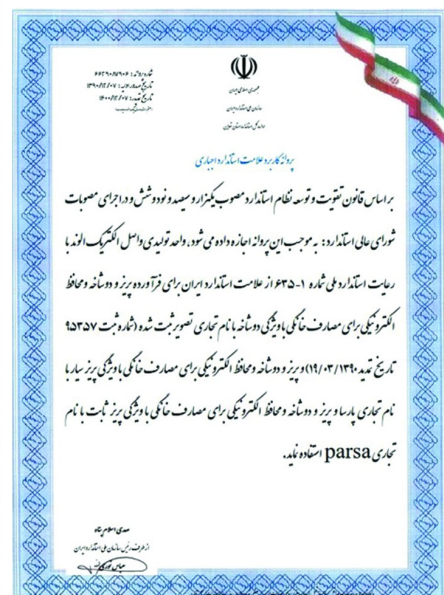 جمهوری اسلامی ایران
سازمان ملی استاندارد ایران
اداره کل استاندارد استان قزوین
شماره پروانه: ۶۶۳۹۰۸۷۹۰۶
تاریخ صدور اولیه: ۱۳۹۰/۱۲/۰۷
تاریخ تمدید: ۱۴۰۰/۱۲/۰۷
پروانه کاربرد علامت استاندارد اجباری
بر اساس قانون تقویت و توسعه نظام استاندارد مصوب یکهزار و سیصد و نود و شش و در اجرای مصوبات
شورای عالی استاندارد: به موجب این پروانه اجازه داده می شود، واحد تولیدی واصل الکتریک الوند با
رعایت استاندارد ملی شماره ۱-۶۳۵ از علامت استاندارد ایران برای فرآورده پریز و دوشاخه و محافظ
الکترونیکی برای مصارف خانگی با ویژگی دوشاخه با نام تجاری تصویر ثبت شده (شماره ثبت ۹۵۳۵۷
تاریخ تمدید ۱۹/۰۳/۱۳۹۰) و پریز و دوشاخه و محافظ الکترونیکی برای مصارف خانگی با ویژگی پریز سیار با
نام تجاری پارسا و پریز و دوشاخه و محافظ الکترونیکی برای مصارف خانگی با ویژگی پریز ثابت با نام
تجاری parsa استفاده نماید.
مهدی اسلام پناه
از طرف رئیس سازمان ملی استاندارد ایران